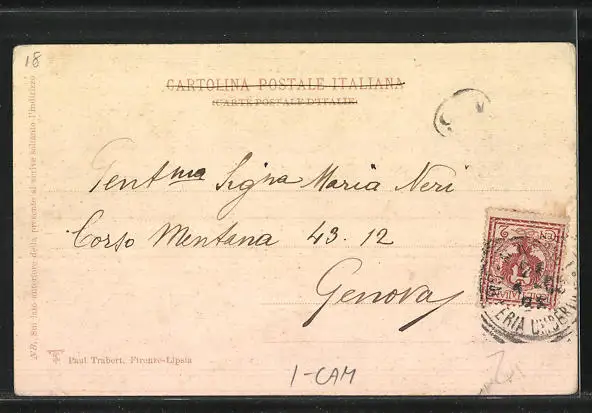 18
CARTOLINA POSTALE ITALIANA
(CARTE POSTALE D'ITALIE)
Gentma Signa Maria Neri
Corso Mentana 43.12
Genova
NB. Sul lato anteriore della presente si scrive soltanto l'indirizzo
Paul Trabert, Firenze-Lipsia
1-CAM